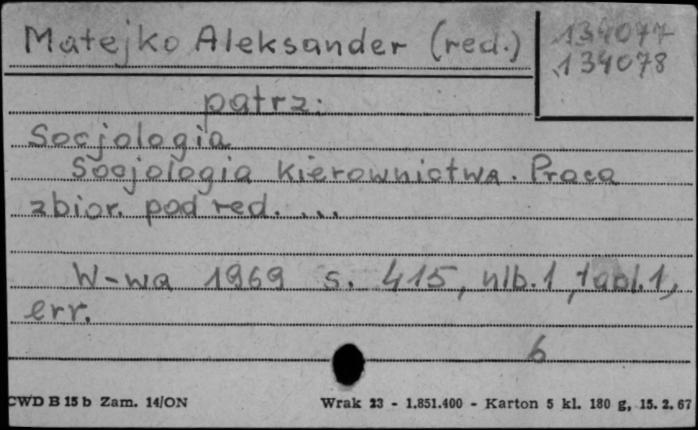 Matejko Aleksander (red.)
134077
134078
patrz:
Socjologia
Socjologia kierownictwa. Praca
zbior. pod red. ...
W-wa 1969 s. 415, nlb. 1, tabl. 1,
err.
6
CWD B 15 b Zam. 14/ON
Wrak 23 - 1.851.400 - Karton 5 kl. 180 g, 15. 2. 67